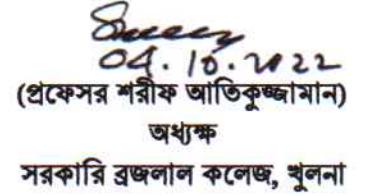 04.10.2022
(প্রফেসর শরীফ আতিকুজ্জামান)
অধ্যক্ষ
সরকারি ব্রজলাল কলেজ, খুলনা